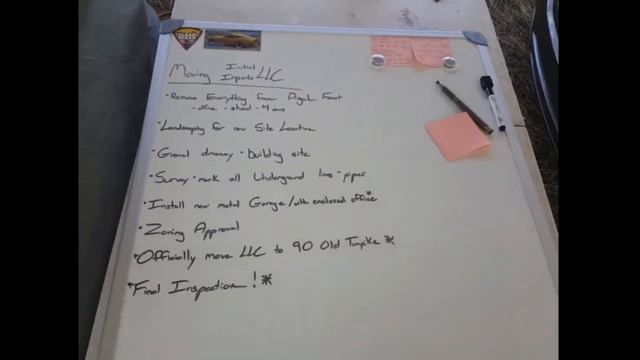 Moving Initial Inputs LLC
• Remove Everything from
- office - shed - 4 cars
• Landscaping for new Site Location
• Gravel driveway • building site
• Survey • mark all Underground lines • pipes
• Install new metal Garage / with enclosed office*
• Zoning Approval
• Officially move LLC to 90 Old Turnpike *
• Final Inspection! *